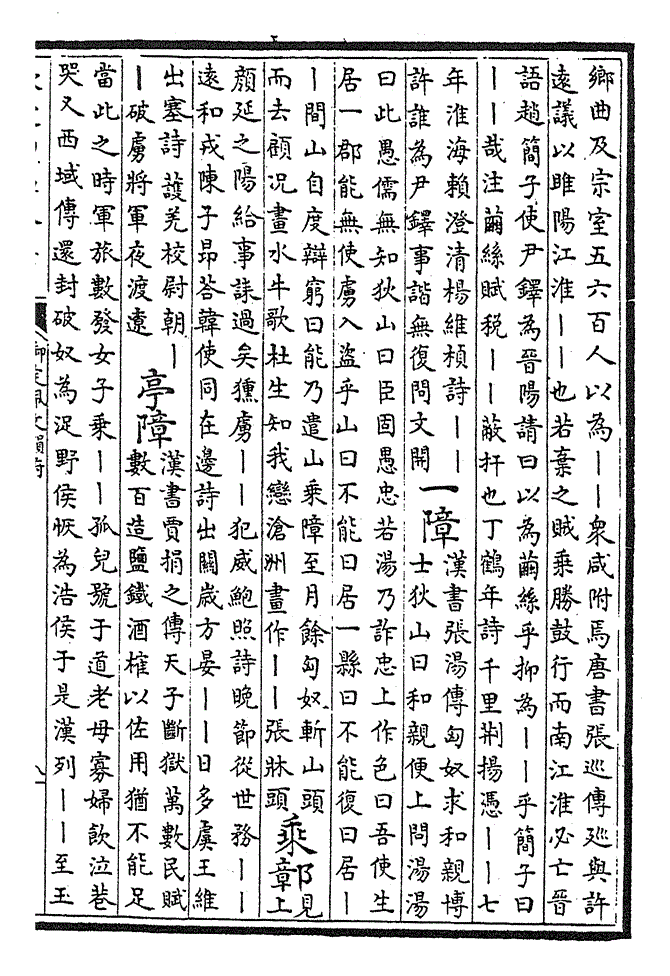 鄉曲及宗室五六百人以為｜｜衆咸附焉唐書張巡傳巡與許
遠議以睢陽江淮｜｜也若棄之賊乘勝鼓行而南江淮必亡晉
語趙簡子使尹鐸為晉陽請曰以為繭絲乎抑為｜｜乎簡子曰
｜｜哉注繭絲賦税｜｜蔽扞也丁鶴年詩千里荆揚憑｜｜七
年淮海賴澄清楊維楨詩｜｜
許誰為尹鐸事諧無復問文開
一障
漢書張湯傳匈奴求和親博
士狄山曰和親便上問湯湯
曰此愚儒無知狄山曰臣固愚忠若湯乃詐忠上作色曰吾使生
居一郡能無使虜入盗乎山曰不能曰居一縣曰不能復曰居｜
｜間山自度辯窮曰能乃遣山乘障至月餘匈奴斬山頭
而去顧况畫水牛歌杜生知我戀滄洲畫作｜｜張牀頭
乘鄣
見
上
顔延之陽給事誄過矣獯虜｜｜犯威鮑照詩晚節從世務｜｜
遠和戎陳子昂荅韓使同在邊詩出關歲方晏｜｜日多虞王維
出塞詩䕶羌校尉朝｜
｜破虜將軍夜渡遼
亭障
漢書賈捐之傳天子斷獄萬數民賦
數百造鹽鐵酒榷以佐用猶不能足
當此之時軍旅數發女子乘｜｜孤兒號于道老母寡婦飲泣巷
哭又西域傳還封破奴為浞野侯恢為浩侯于是漢列｜｜至玉